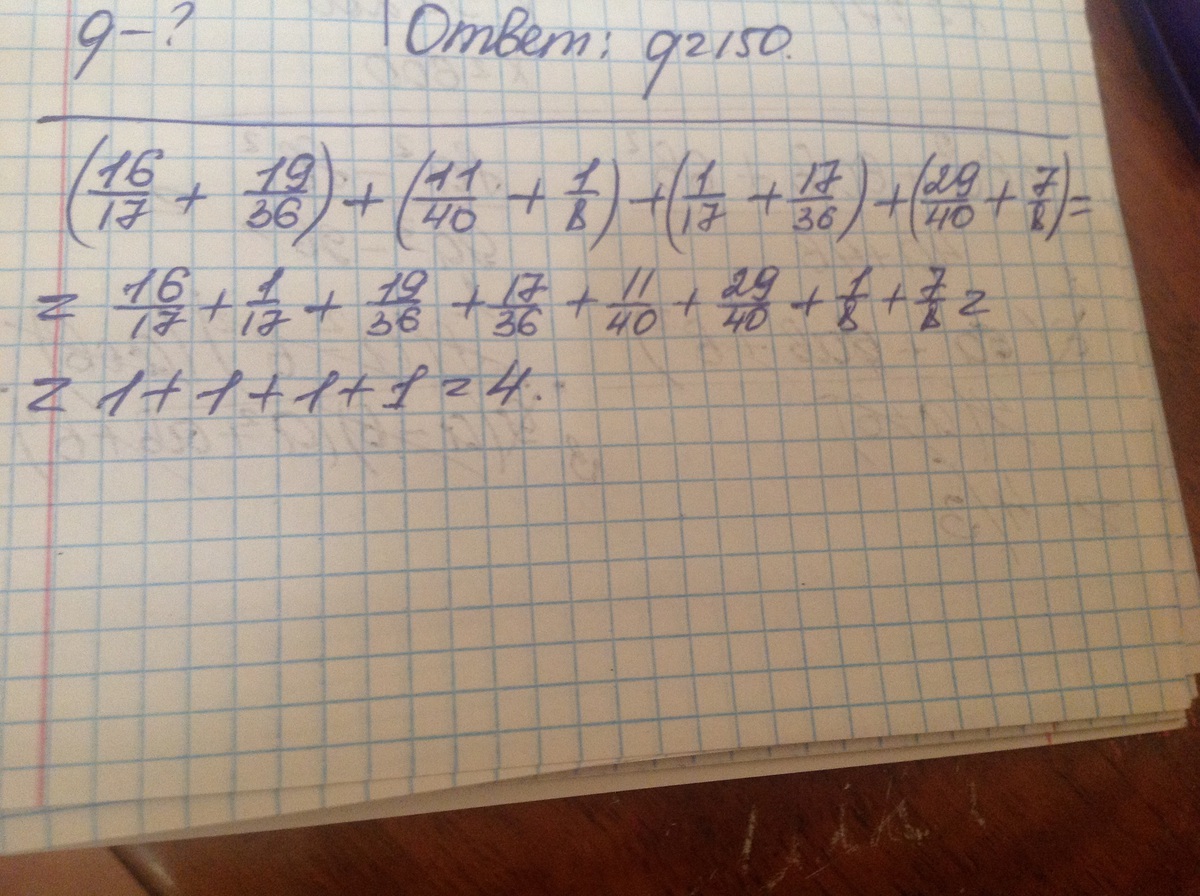 q-? Ответ: q=150.
(16/17 + 19/36) + (11/40 + 1/8) + (1/17 + 17/36) + (29/40 + 7/8) =
= 16/17 + 1/17 + 19/36 + 17/36 + 11/40 + 29/40 + 1/8 + 7/8 =
= 1 + 1 + 1 + 1 = 4.